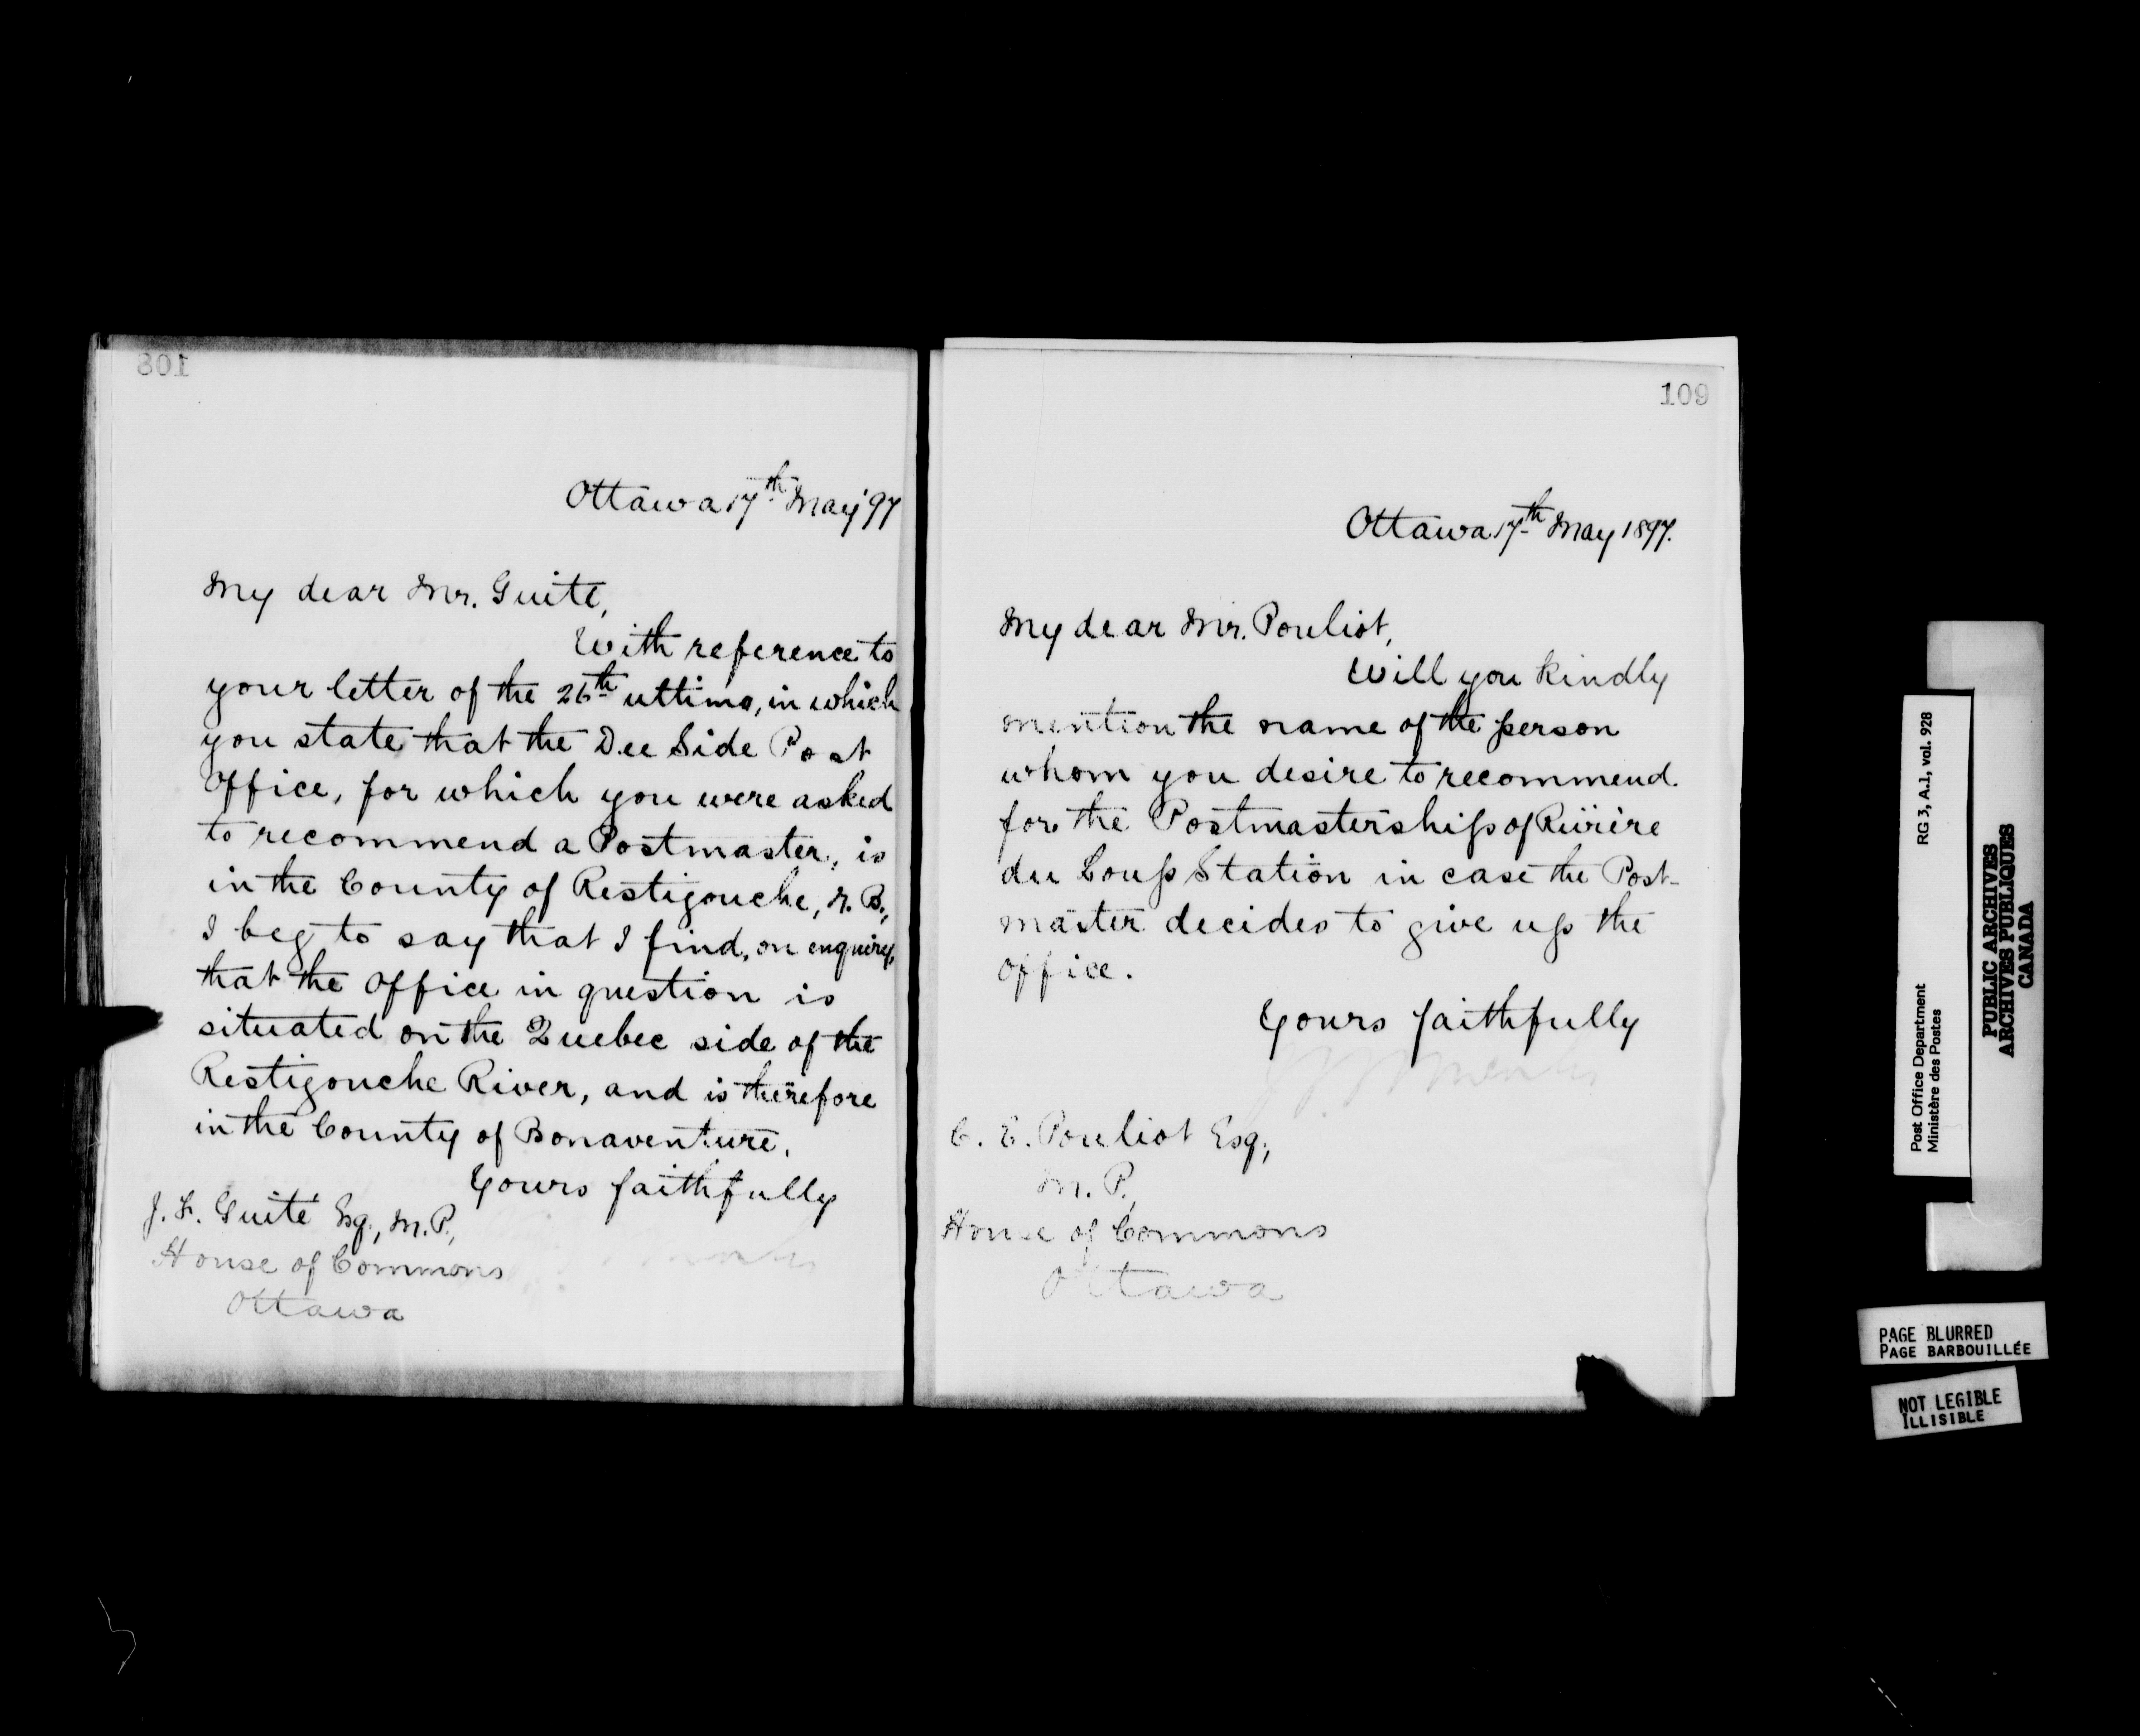 801
Ottawa 17th May '97
My dear Mr. Guité,
With reference to
your letter of the 26th ultimo, in which
you state that the Dee Side Post
Office, for which you were asked
to recommend a Postmaster, is
in the County of Restigouche, N. B.,
I beg to say that I find, on enquiry,
that the Office in question is
situated on the Quebec side of the
Restigouche River, and is therefore
in the County of Bonaventure.
Yours faithfully
J. F. Guité Esq., M. P.,
House of Commons
Ottawa
109
Ottawa 17th May 1897.
My dear Mr. Pouliot,
Will you kindly
mention the name of the person
whom you desire to recommend
for the Postmastership of Rivière
du Loup Station in case the Post-
master decides to give up the
office.
Yours faithfully
C. E. Pouliot Esq.,
M. P.,
House of Commons
Ottawa
RG 3, A.1, vol. 928
Post Office Department
Ministère des Postes
PUBLIC ARCHIVES
ARCHIVES PUBLIQUES
CANADA
PAGE BLURRED
PAGE BARBOUILLÉE
NOT LEGIBLE
ILLISIBLE